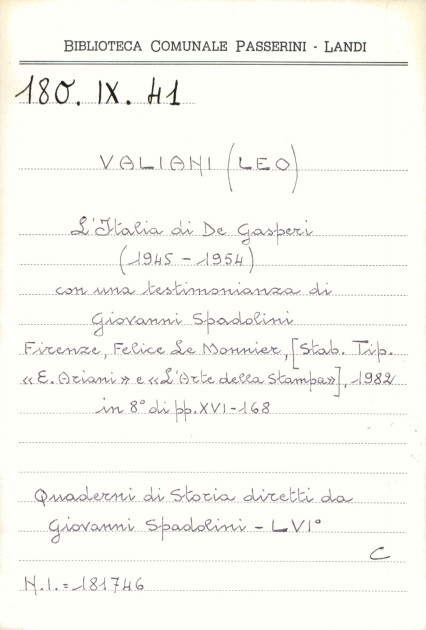 BIBLIOTECA COMUNALE PASSERINI - LANDI
180. IX. 41
VALIANI (LEO)
L'Italia di De Gasperi
(1945 - 1954)
con una testimonianza di
Giovanni Spadolini
Firenze, Felice Le Monnier, [Stab. Tip.
«E. Ariani» e «L'Arte della Stampa»], 1982
in 8° di pp. XVI-168
Quaderni di Storia diretti da
Giovanni Spadolini - LVI°
C
N.I. = 181746